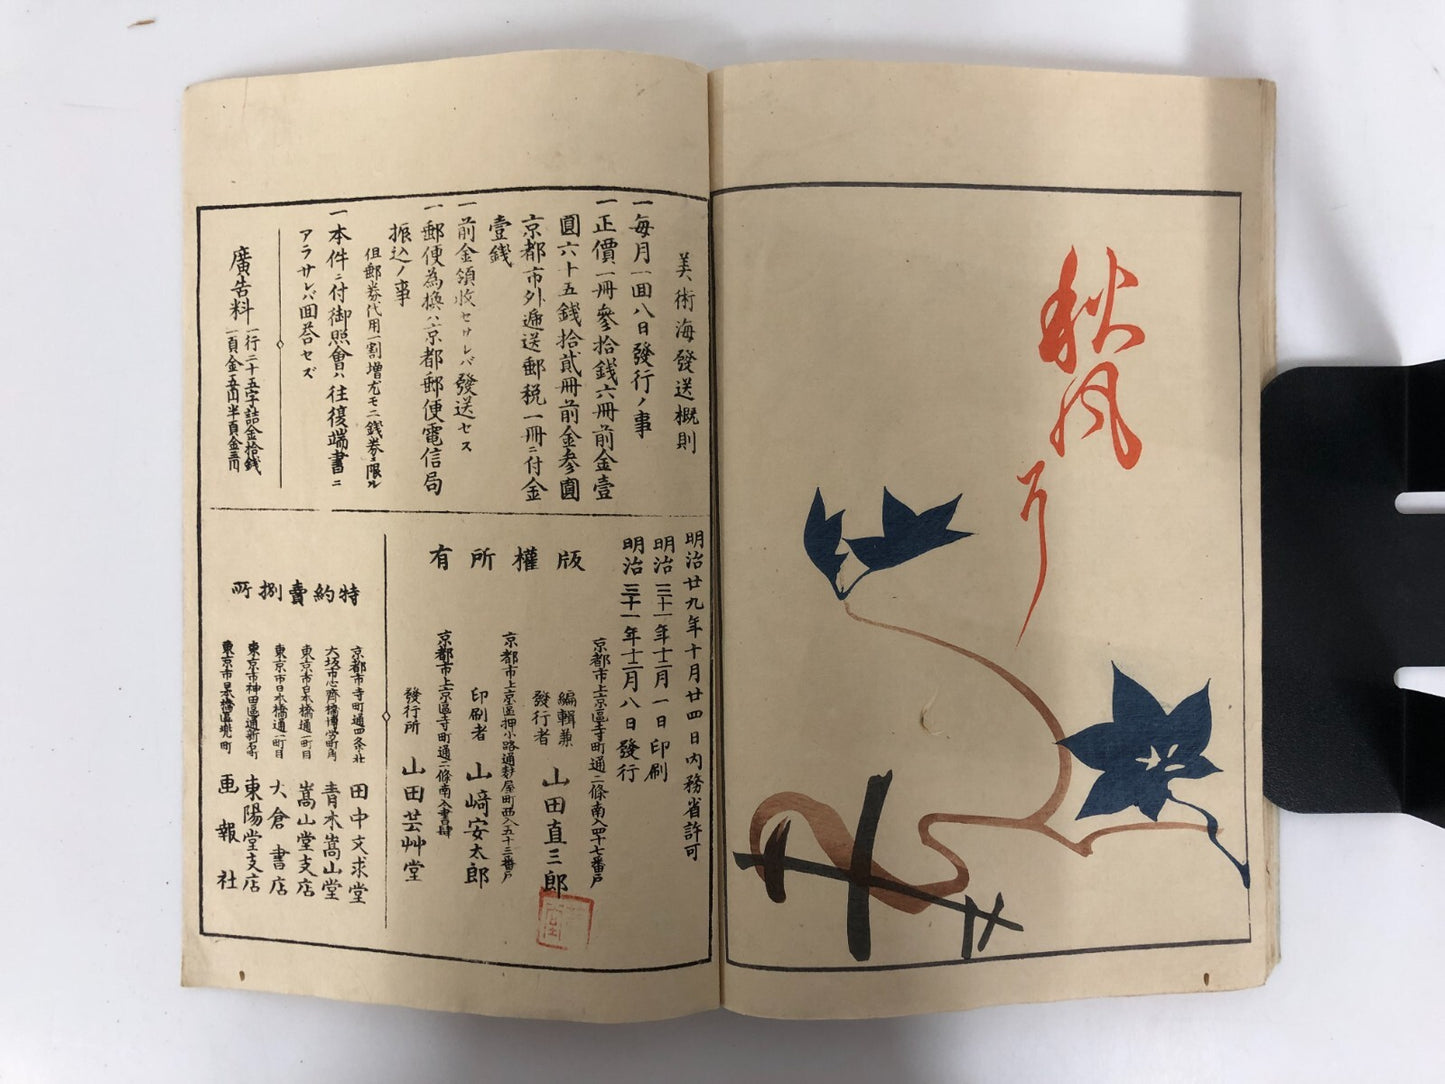 秋風
美術海發送概則
一毎月一回八日發行ノ事
一正價一冊參拾錢六冊前金壹
圓六十五錢拾貳冊前金参圓
京都市外遞送郵税一冊ニ付金
壹錢
一前金領收セサレバ發送セス
一郵便為換ハ京都郵便電信局
振込ノ事
但郵券代用一割増尤モ二錢券ニ限ル
一本件ニ付御照會ハ往復端書ニ
アラサレバ回荅セズ
廣告料
一行二十五字詰金拾錢
一頁金五円半頁金三円
明治廿九年十月廿四日内務省許可
明治三十一年十二月一日印刷
明治三十一年十二月八日發行
版權所有
京都市上京區寺町通二條南入四十七番戸
編輯兼
發行者
山田直三郎
京都市上京區押小路通麩屋町西入五十三番戸
印刷者
山﨑安太郎
京都市上京區寺町通二條南入書肆
發行所
山田芸艸堂
特約賣捌所
京都市寺町通四条上
田中文求堂
大坂市心齊橋博労町角
青木嵩山堂
東京市日本橋通一町目
嵩山堂支店
東京市日本橋通一町目
大倉書店
東京市神田區通新石町
東陽堂支店
東京市京橋區兜町
画報社